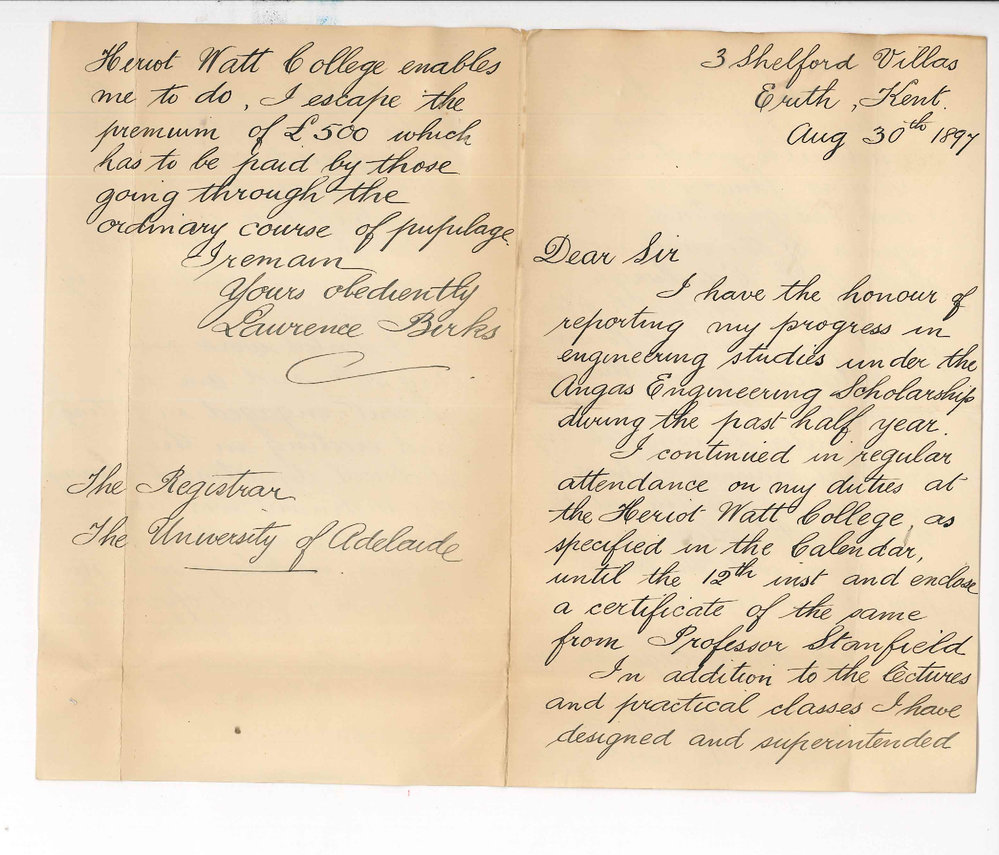 3 Shelford Villas
Erith, Kent.
Aug 30th 1897
Dear Sir
I have the honour of
reporting my progress in
engineering studies under the
Angas Engineering Scholarship
during the past half year.
I continued in regular
attendance on my duties at
the Heriot Watt College, as
specified in the Calendar,
until the 12th inst and enclose
a certificate of the same
from Professor Stanfield
In addition to the lectures
and practical classes I have
designed and superintended
Heriot Watt College enables
me to do, I escape the
premium of £500 which
has to be paid by those
going through the
ordinary course of pupilage.
I remain
Yours obediently
Lawrence Birks
The Registrar
The University of Adelaide